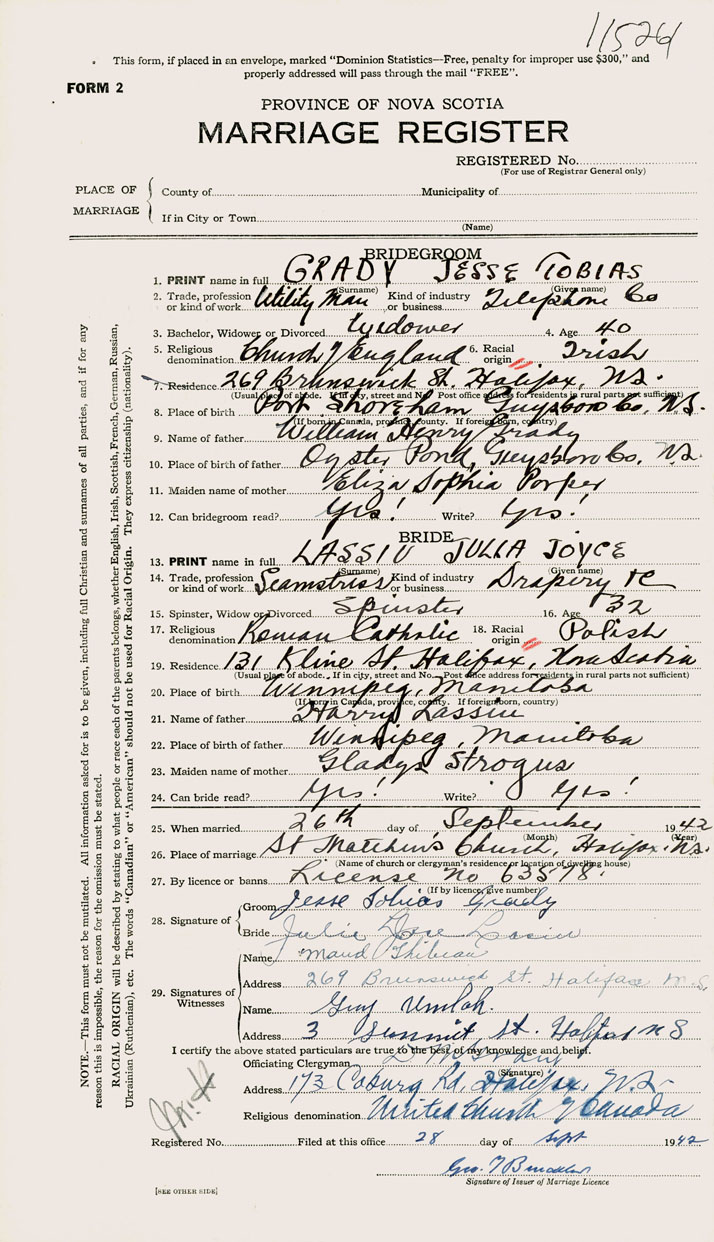 11524
This form, if placed in an envelope, marked "Dominion Statistics—Free, penalty for improper use $300," and
properly addressed will pass through the mail "FREE".
FORM 2
PROVINCE OF NOVA SCOTIA
MARRIAGE REGISTER
REGISTERED No.
(For use of Registrar General only)
PLACE OF MARRIAGE
County of Municipality of
If in City or Town
(Name)
BRIDEGROOM
1. PRINT name in full GRADY JESSE TOBIAS
(Surname) (Given name)
2. Trade, profession or kind of work Utility Man Kind of industry or business Telephone Co
3. Bachelor, Widower or Divorced Widower 4. Age 40
5. Religious denomination Church of England 6. Racial origin Irish
7. Residence 269 Brunswick St. Halifax, N.S.
(Usual place of abode. If in city, street and No. Post office address for residents in rural parts not sufficient)
8. Place of birth Port Shoreham Guysboro Co, N.S.
(If born in Canada, province, county. If foreign born, country)
9. Name of father William Henry Grady
10. Place of birth of father Oyster Pond, Guysboro Co, N.S.
11. Maiden name of mother Eliza Sophia Porper
12. Can bridegroom read? Yes! Write? Yes!
BRIDE
13. PRINT name in full LASSIU JULIA JOYCE
(Surname) (Given name)
14. Trade, profession or kind of work Seamstress Kind of industry or business Drapery tc
15. Spinster, Widow or Divorced Spinster 16. Age 32
17. Religious denomination Roman Catholic 18. Racial origin Polish
19. Residence 131 Kline St. Halifax, Nova Scotia
(Usual place of abode. If in city, street and No. Post office address for residents in rural parts not sufficient)
20. Place of birth Winnipeg, Manitoba
(If born in Canada, province, county. If foreign born, country)
21. Name of father Harry Lassiu
22. Place of birth of father Winnipeg, Manitoba
23. Maiden name of mother Gladys Strogus
24. Can bride read? Yes! Write? Yes!
25. When married 26th day of September 1942
(Month) (Year)
26. Place of marriage St Matthew's Church, Halifax, N.S.
(Name of church or clergyman's residence or location of dwelling house)
27. By licence or banns License No 63578
(If by licence, give number)
28. Signature of
Groom Jesse Tobias Grady
Bride Julie
29. Signatures of Witnesses
Name Maud
Address 269 Brunswick St. Halifax N.S.
Name Guy Umlah.
Address 3 Summit St. Halifax N S
I certify the above stated particulars are true to the best of my knowledge and belief.
Officiating Clergyman
(Signature)
Address 173 Coburg Rd, Halifax, N.S.
Religious denomination United Church of Canada
Registered No. Filed at this office 28 day of Sept 1942
Geo. T
Signature of Issuer of Marriage Licence
[SEE OTHER SIDE]
NOTE.—This form must not be mutilated. All information asked for is to be given, including full Christian and surnames of all parties, and if for any
reason this is impossible, the reason for the omission must be stated.
RACIAL ORIGIN will be described by stating to what people or race each of the parents belongs, whether English, Irish, Scottish, French, German, Russian,
Ukrainian (Ruthenian), etc. The words "Canadian" or "American" should not be used for Racial Origin. They express citizenship (nationality).